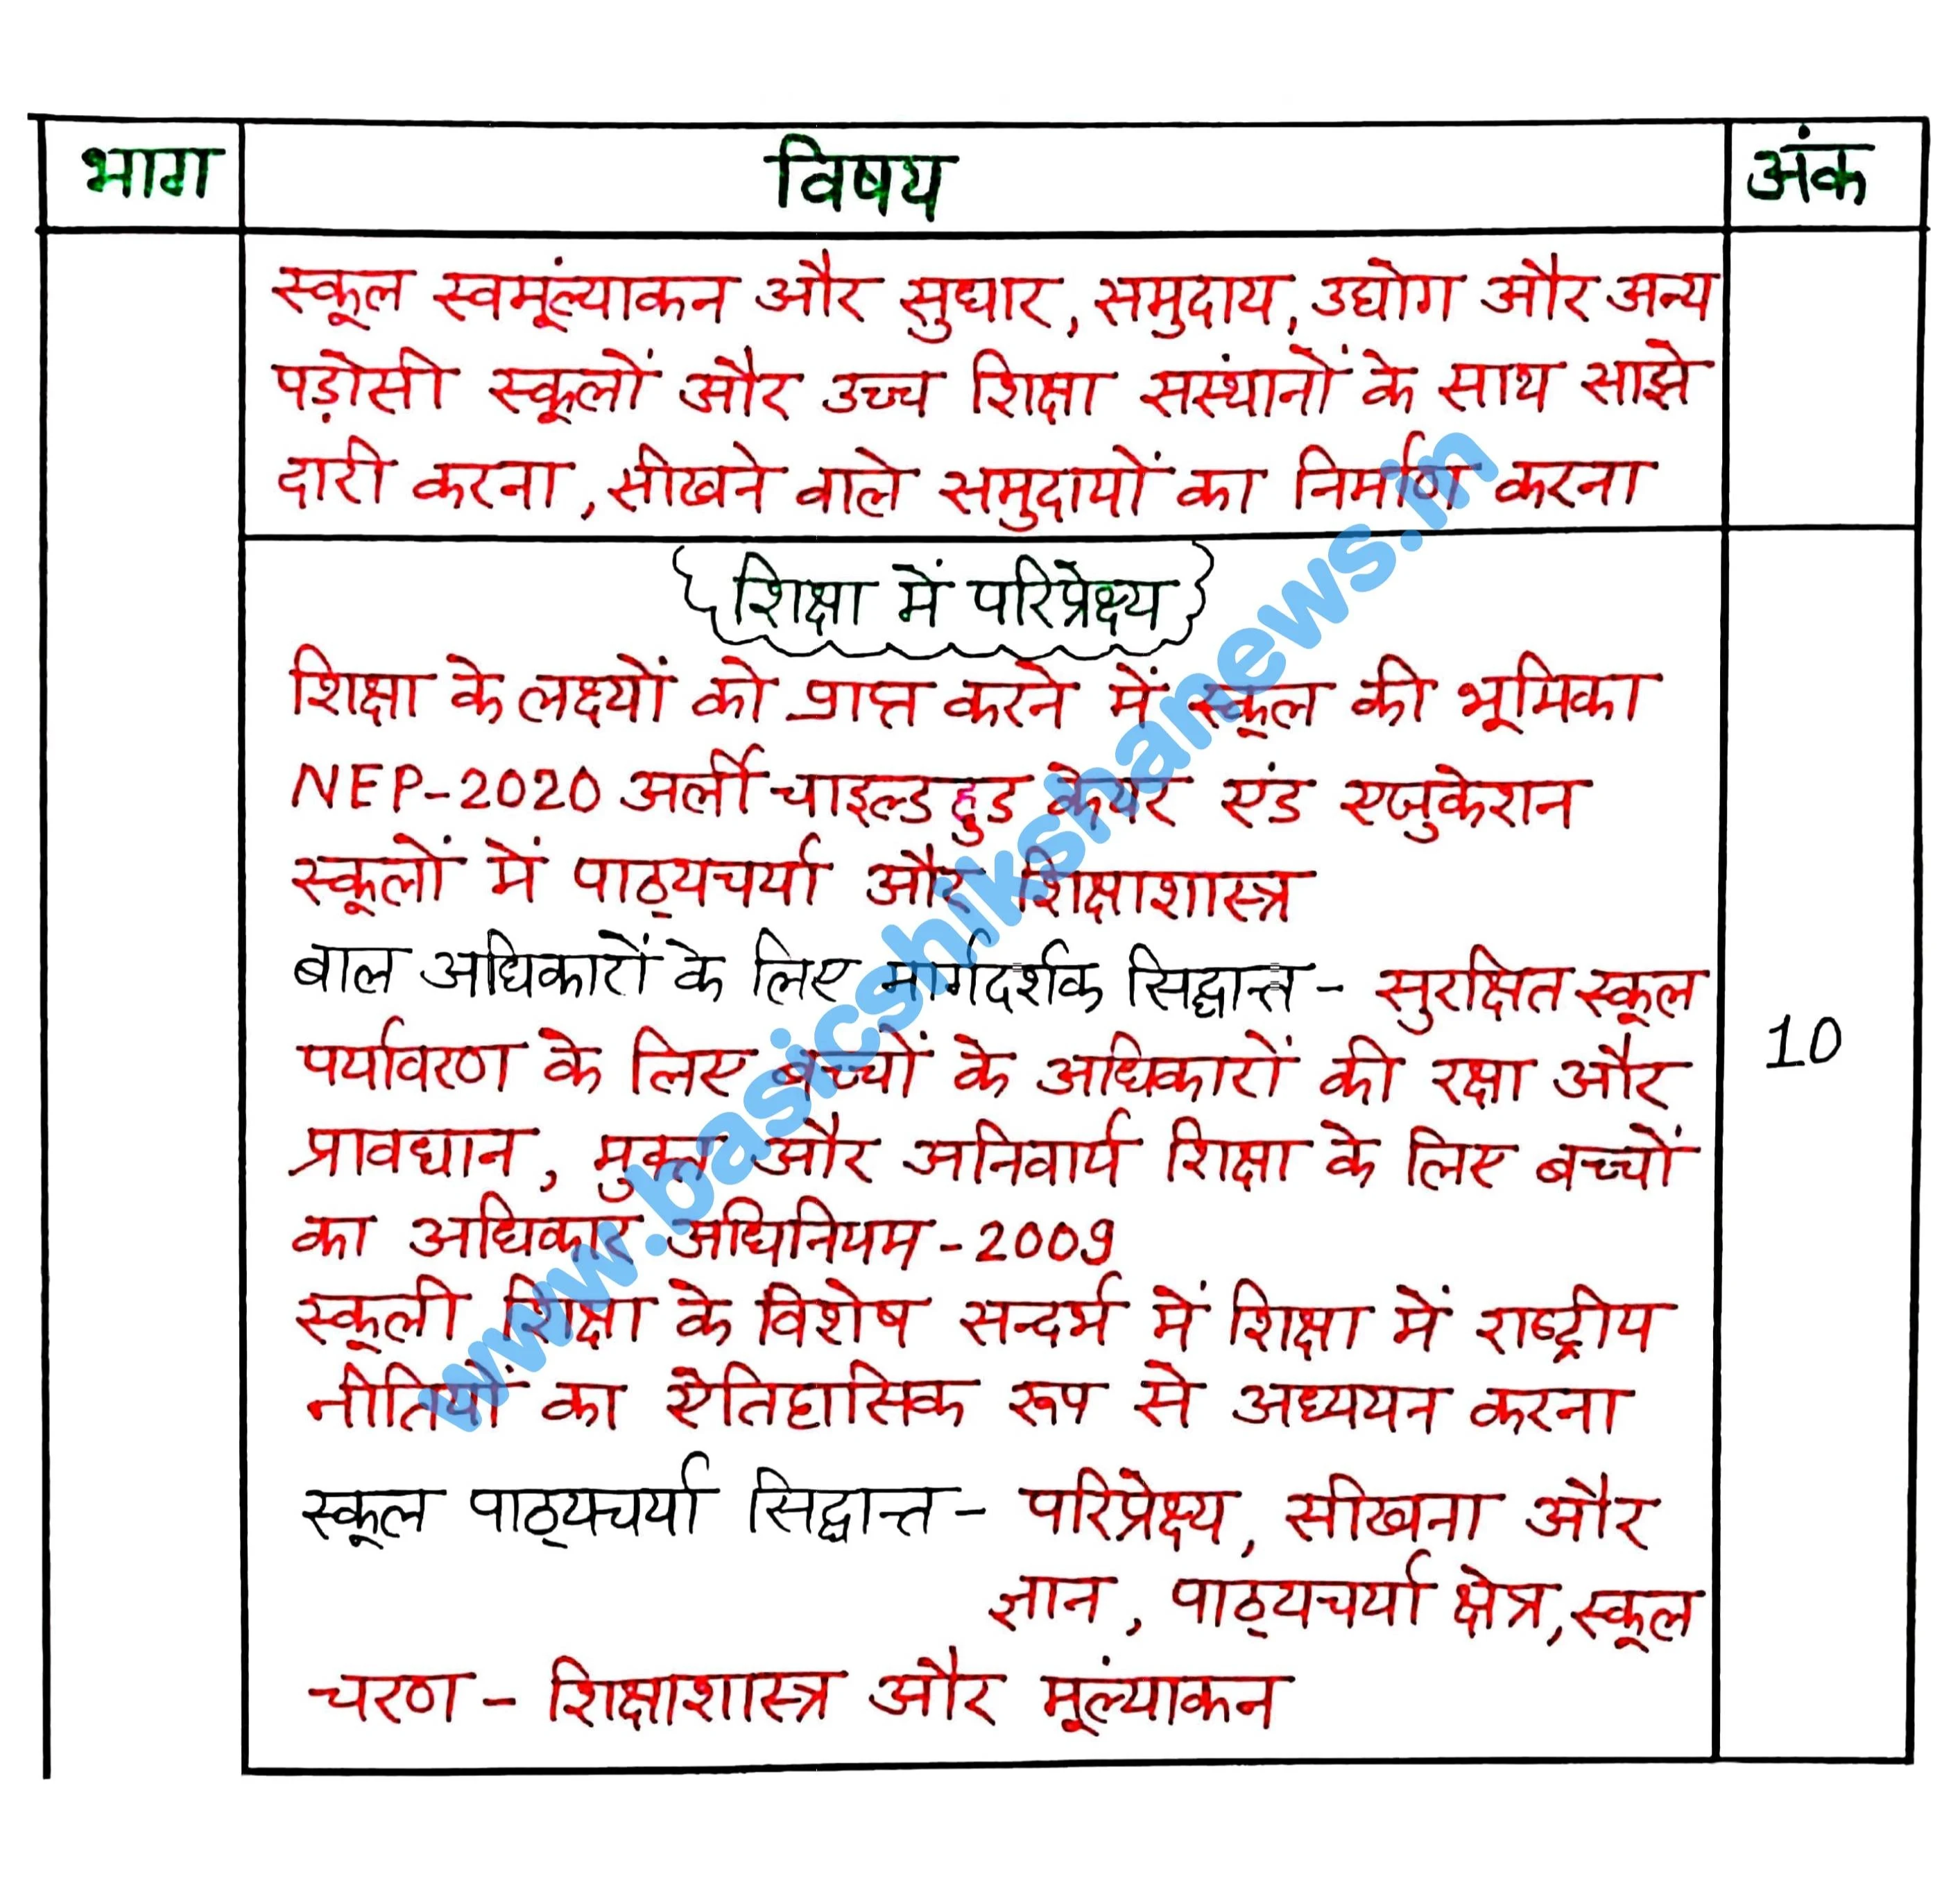 भाग विषय अंक
स्कूल स्वमूंल्याकन और सुधार, समुदाय, उद्योग और अन्य
पड़ोसी स्कूलों और उच्च शिक्षा संस्थानों के साथ साझे
दारी करना, सीखने वाले समुदायों का निर्माण करना
शिक्षा में परिप्रेक्ष्य
शिक्षा के लक्ष्यों को प्राप्त करने में स्कूल की भूमिका
NEP-2020 अर्ली चाइल्ड हुड केयर एंड एजुकेशन
स्कूलों में पाठ्यचर्या और शिक्षाशास्त्र
बाल अधिकारों के लिए मार्गदर्शक सिद्धान्त - सुरक्षित स्कूल
पर्यावरण के लिए बच्चों के अधिकारों की रक्षा और
10
प्रावधान, मुक्त और अनिवार्य शिक्षा के लिए बच्चों
का अधिकार अधिनियम - 2009
स्कूली शिक्षा के विशेष सन्दर्भ में शिक्षा में राष्ट्रीय
नीतियों का ऐतिहासिक रूप से अध्ययन करना
स्कूल पाठ्यचर्या सिद्धान्त - परिप्रेक्ष्य, सीखना और
ज्ञान, पाठ्यचर्या क्षेत्र, स्कूल
चरण - शिक्षाशास्त्र और मूंल्याकन
www.basicshikshanews.in